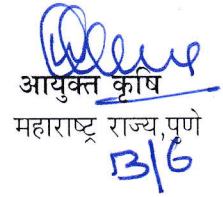 आयुक्त कृषि
महाराष्ट्र राज्य,पुणे
13/6